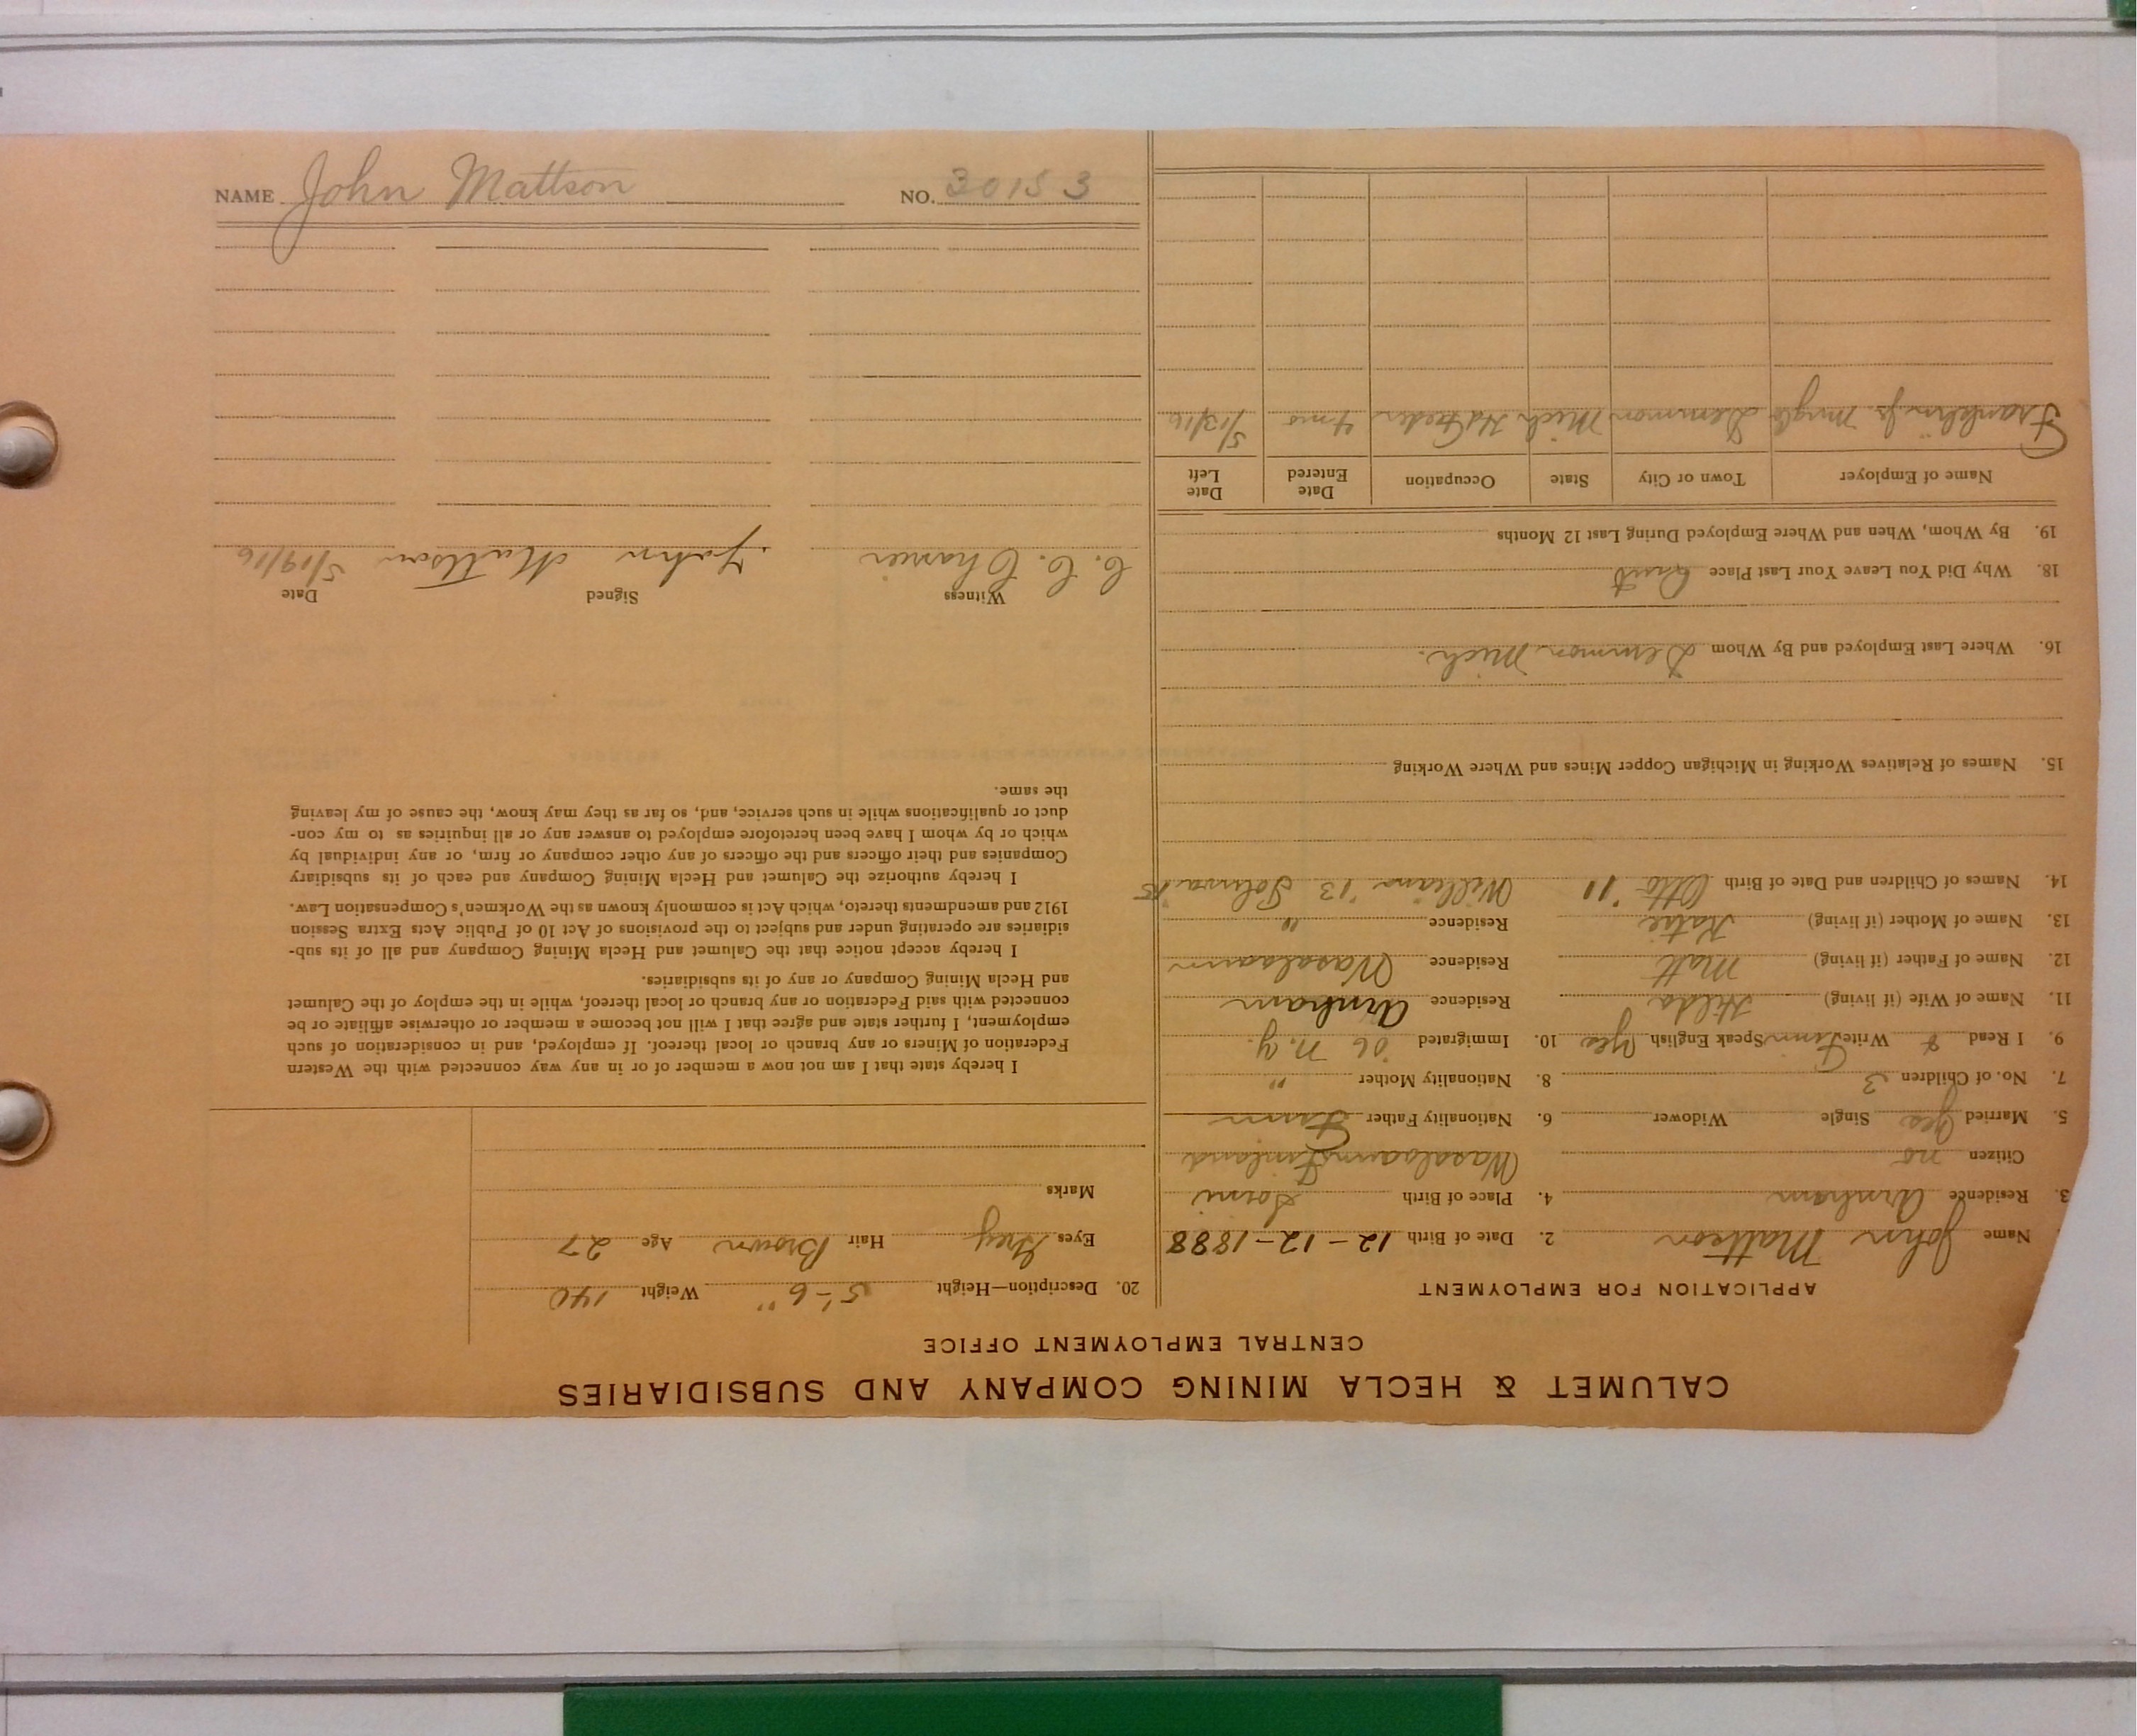 CALUMET & HECLA MINING COMPANY AND SUBSIDIARIES
CENTRAL EMPLOYMENT OFFICE
APPLICATION FOR EMPLOYMENT
Name John Mattson 2. Date of Birth 12-12-1888
3. Residence Arnheim 4. Place of Birth
Citizen no Wasalaani Finland
5. Married yes Single Widower 6. Nationality Father Finn
7. No. of Children 3 8. Nationality Mother "
9. I Read & Write Finn Speak English yes 10. Immigrated '06 N.Y.
11. Name of Wife (if living) Hilda Residence Arnheim
12. Name of Father (if living) Matt Residence Wasalaani
13. Name of Mother (if living) Katie Residence "
14. Names of Children and Date of Birth Otto '11 William '13 '15
15. Names of Relatives Working in Michigan Copper Mines and Where Working
16. Where Last Employed and By Whom Demmon Mich.
18. Why Did You Leave Your Last Place Quit
19. By Whom, When and Where Employed During Last 12 Months
Name of Employer Town or City State Occupation Date Entered Date Left
Franklin Jr. Mng Co Demmon Mich 4 mo 5/13/16
20. Description—Height 5'-6" Weight 140
Eyes Grey Hair Brown Age 27
Marks
I hereby state that I am not now a member of or in any way connected with the Western
Federation of Miners or any branch or local thereof. If employed, and in consideration of such
employment, I further state and agree that I will not become a member or otherwise affiliate or be
connected with said Federation or any branch or local thereof, while in the employ of the Calumet
and Hecla Mining Company or any of its subsidiaries.
I hereby accept notice that the Calumet and Hecla Mining Company and all of its sub-
sidiaries are operating under and subject to the provisions of Act 10 of Public Acts Extra Session
1912 and amendments thereto, which Act is commonly known as the Workmen's Compensation Law.
I hereby authorize the Calumet and Hecla Mining Company and each of its subsidiary
Companies and their officers and the officers of any other company or firm, or any individual by
which or by whom I have been heretofore employed to answer any or all inquiries as to my con-
duct or qualifications while in such service, and, so far as they may know, the cause of my leaving
the same.
Witness Signed Date
C. C. John Mattson 5/19/16
NAME John Mattson NO. 30153